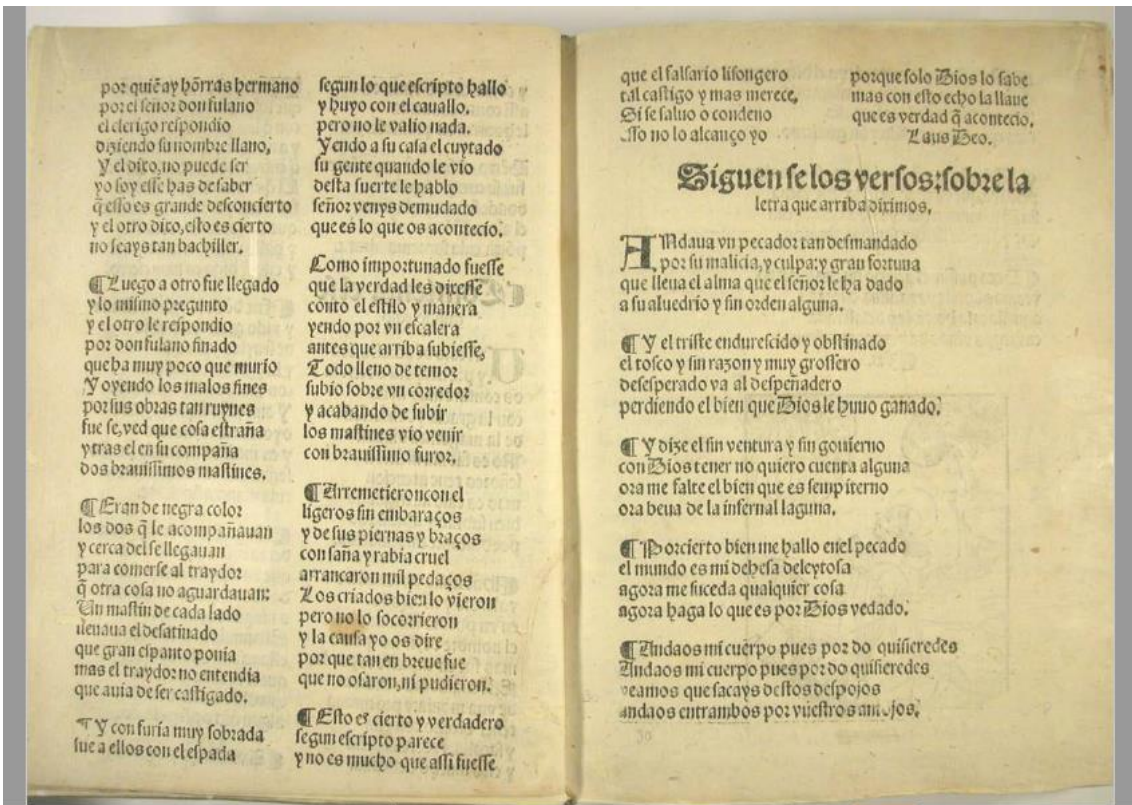 por quiẽ ay hõrras hermano
por el señor don fulano
el clerigo respondio
diziendo su nombre llano,
Y el dixo, no puede ser
yo soy esse has de saber
q̃ esso es grande desconcierto
y el otro dixo, esto es cierto
no seays tan bachiller.
¶ Luego a otro fue llegado
y lo mismo pregunto
y el otro le respondio
por don fulano finado
que ha muy poco que murio
Y oyendo los malos fines
por sus obras tan ruynes
fue se, ved que cosa estraña
y tras el en su compaña
dos brauissimos mastines.
¶ Eran de negra color
los dos q̃ le acompañauan
y cerca del se llegauan
para comerse al traydor
q̃ otra cosa no aguardauan:
Un mastin de cada lado
lleuaua el desatinado
que gran espanto ponia
mas el traydor no entendia
que auia de ser castigado.
¶ Y con furia muy sobrada
fue a ellos con el espada
segun lo que escripto hallo
y huyo con el cauallo.
pero no le valio nada.
Yendo a su casa el cuytado
su gente quando le vio
desta suerte le hablo
señor venys demudado
que es lo que os acontecio.
Como importunado fuesse
que la verdad les dixesse
conto el estilo y manera
yendo por vn escalera
antes que arriba subiesse,
Todo lleno de temor
subio sobre vn corredor
y acabando de subir
los mastines vio venir
con brauissimo furor.
¶ Arremetieron con el
ligeros sin embaraços
y de sus piernas y braços
con saña y rabia cruel
arrancaron mil pedaços
Los criados bien lo vieron
pero no lo socorrieron
y la causa yo os dire
por que tan en breue fue
que no osaron, ni pudieron.
¶ Esto es cierto y verdadero
segun escripto parece
y no es mucho que assi fuesse
que el falsario lisongero
tal castigo y mas merece,
Si se saluo o condeno
Esso no lo alcanço yo
porque solo Dios lo sabe
mas con esto echo la llaue
que es verdad q̃ acontecio.
Laus Deo.
Siguen se los versos: sobre la
letra que arriba diximos.
ANdaua vn pecador tan desmandado
por su malicia, y culpa: y gran fortuna
que lleua el alma que el señor le ha dado
a su aluedrio y sin orden alguna.
¶ Y el triste endurescido y obstinado
el tosco y sin razon y muy grossero
desesperado va al despeñadero
perdiendo el bien que Dios le huuo ganado.
¶ Y dize el sin ventura y sin gouierno
con Dios tener no quiero cuenta alguna
ora me falte el bien que es sempiterno
ora beua de la infernal laguna.
¶ Por cierto bien me hallo enel pecado
el mundo es mi dehesa deleytosa
agora me suceda qualquier cosa
agora haga lo que es por Dios vedado.
¶ Andaos mi cuerpo pues por do quisieredes
Andaos mi cuerpo pues por do quisieredes
veamos que sacays destos despojos
andaos entrambos por vuestros antojos.